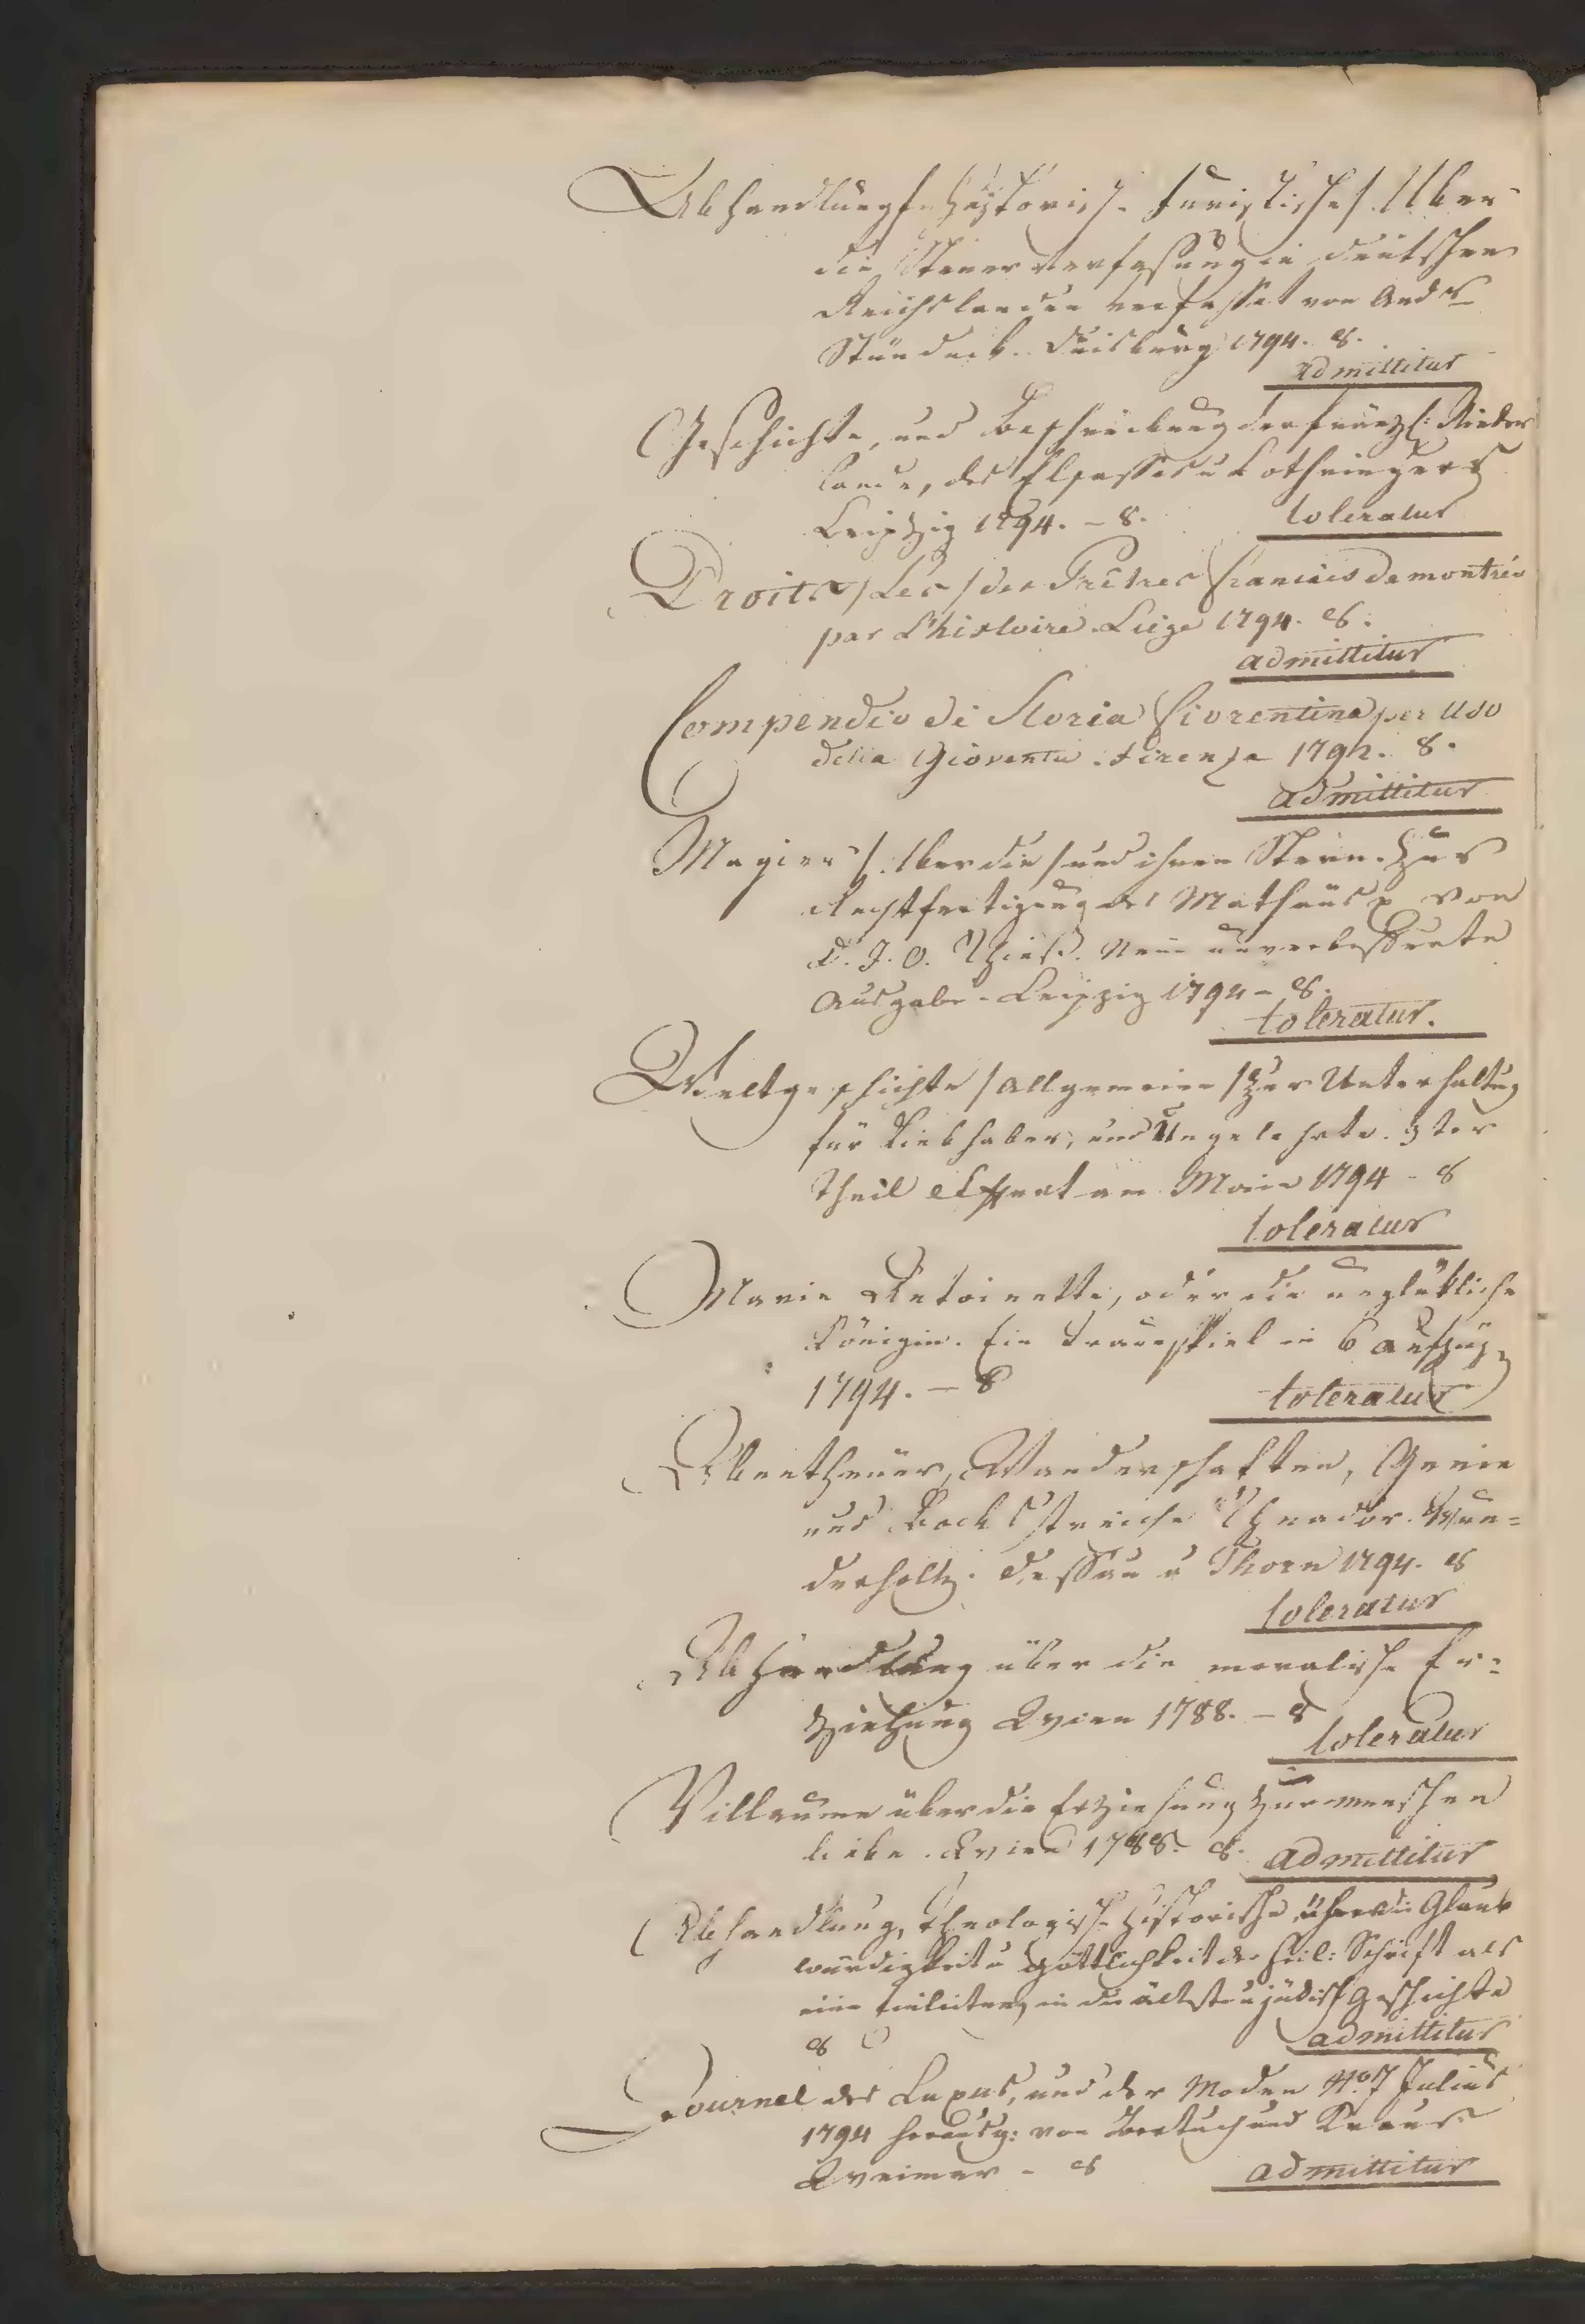 Abhandlung historisch-juristische /: Uber
die Steuerverfassung in deutschen
Reichslanden verfasset von And:
Stündeck. Duisburg 1794. 8.
admittitur
Geschichte, und Beschreibung der französ: Nieder
lande, des Elsasses u Lothringens
Leipzig 1794. – 8.
toleratur
Droits / Les / des Prêtres francais demontrés
par L'histoire. Liége 1794. 8.
admittitur
Compendio di Storia fiorentina per uso
della Gioventu. Firenza 1792. 8.
admittitur
Magier /: Uber die / und ihren Stern. Zur
Rechtfertigung des Mathäus p von
D. J. O. Thieß. Neue unverbesserte
Ausgabe. Leipzig 1794 – 8.
toleratur.
Weltgeschichte / Allgemeine / zur Unterhaltung
für Liebhaber, und Ungelehrte. 3ter
Theil am Main 1794 – 8
toleratur
Marie Antoinette, oder die unglükliche
Königin. Ein Trauerspiel in 6 Aufzügen
1794. – 8
toleratur
Abentheuer, Wanderschaften, Genie
und Bockstreiche Theodor. Wun=
derholtz. Dessau u Thorn 1794. 8
toleratur
Abhandlung über die moralische Er=
ziehung Wien 1788. – 8
toleratur
Villaume über die Erziehung zur menschen
liebe. Wien 1788. 8.
admittitur
Abhandlung, theologisch-historische über die Glaub
würdigkeit u göttlichkeit der heil: Schrift als
eine Einleitung in die älteste u jüdische Geschichte
8
admittitur
Journal des Luxus, und der Moden No. 7 Julius
1794 herausg: von Bertuch und Kraus
Weimar – 8
admittitur